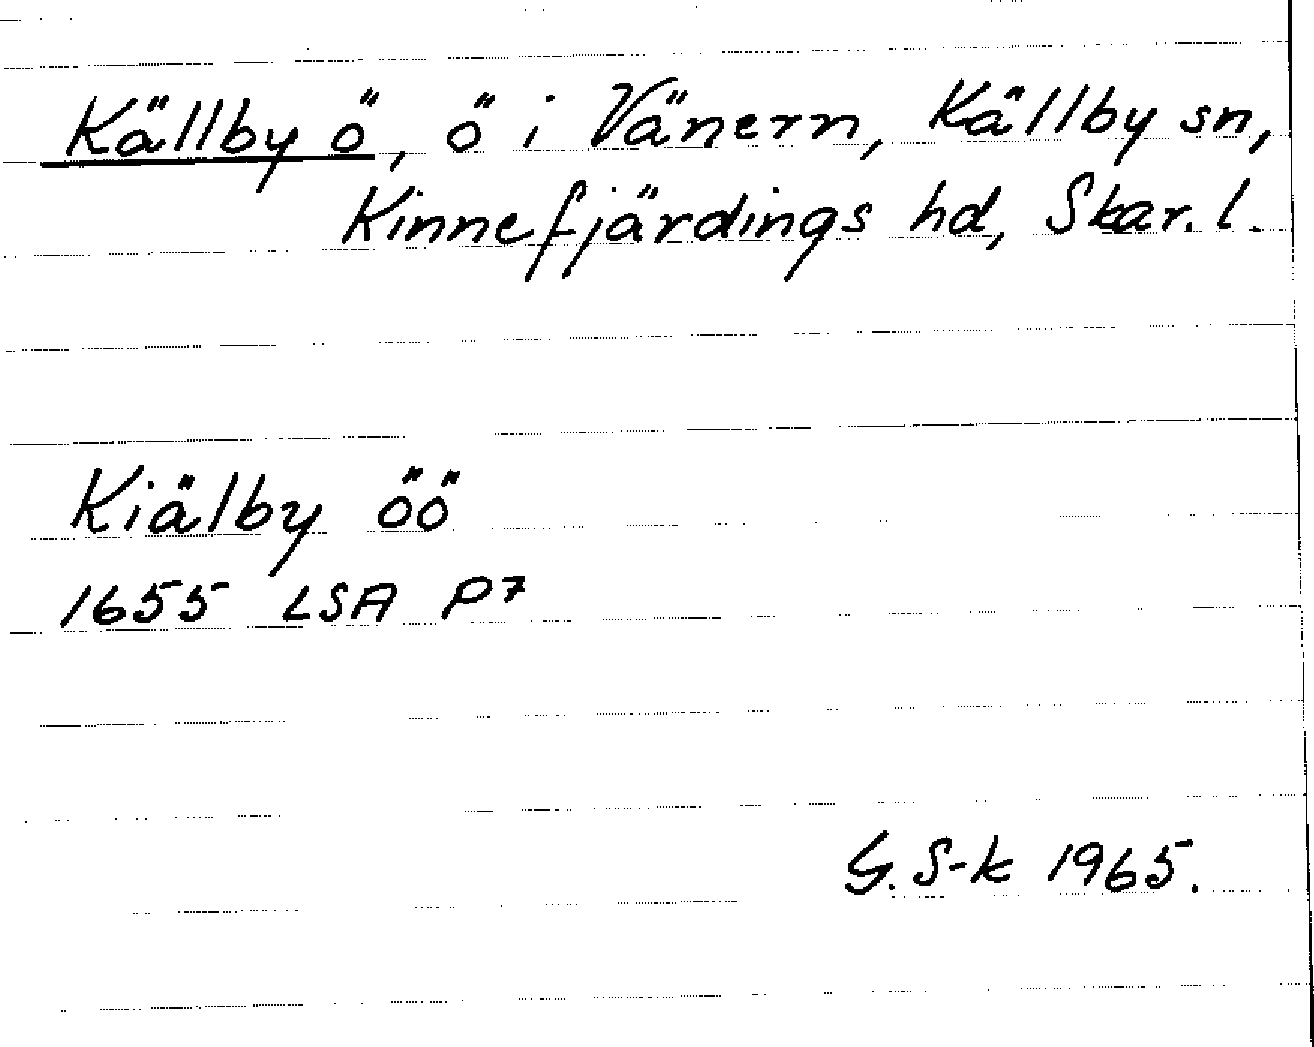 Källby ö, ö i Vänern, Källby sn,
Kinnefjärdings hd, Skar. l.
Kiälby öö
1655 LSA P7
G. S-k 1965.